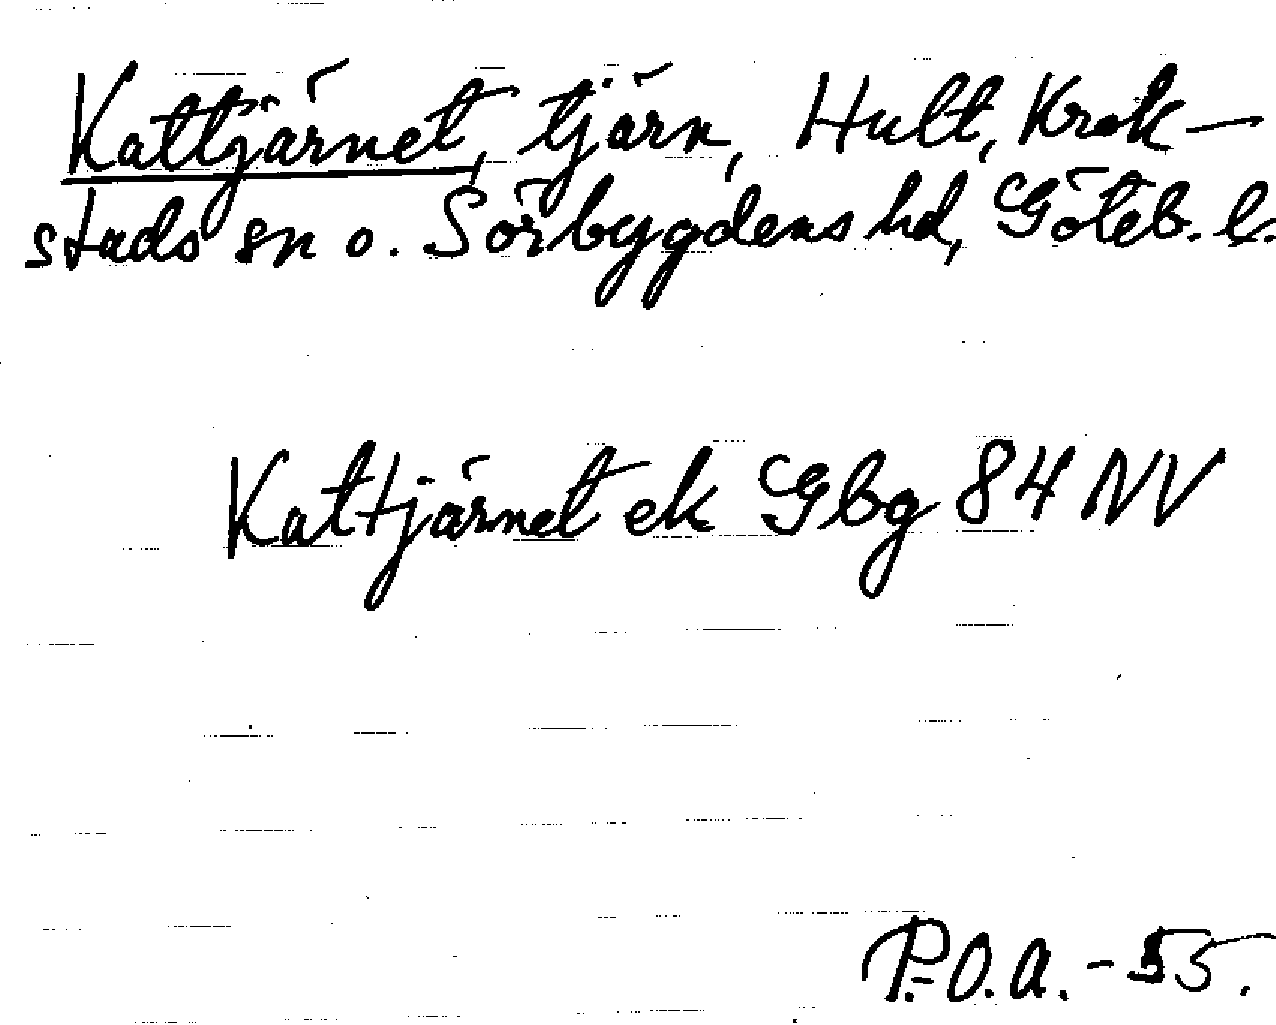 Kattjärnet, tjärn, Hult, Krok-
stads sn o. Sörbygdens hd, Göteb. l.
Kattjärnet ek Gbg 84 NV
P.O.A. - 55.